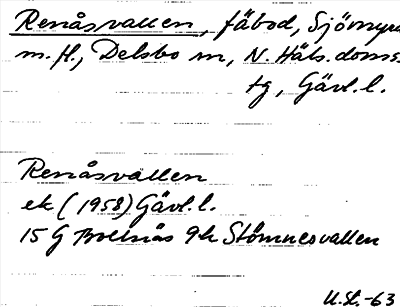 Renåsvallen, fäbod, Sjömyra
m. fl., Delsbo sn, N. Häls. doms.
tg, Gävl. l.
Renåsvallen
ek (1958) Gävl. l.
15 G Bollnäs 9h Stömnesvallen
U.St.-63